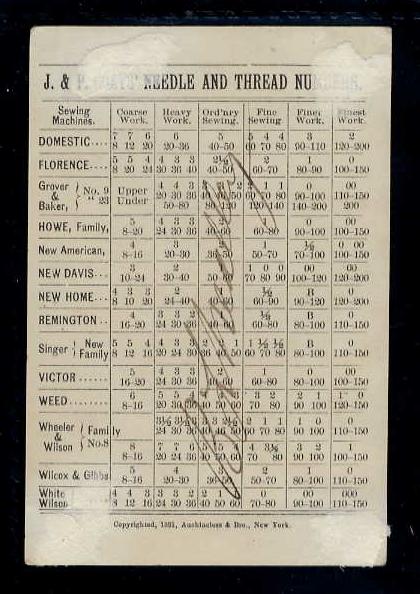 J. & P. COATS' NEEDLE AND THREAD NUMBERS.
Sewing Machines. Coarse Work. Heavy Work. Ord'nry Sewing. Fine Sewing. Finer Work. Finest Work.
7 7 6 6 5 5 4 4 3 2
DOMESTIC.... 8 12 20 20–36 40–50 60 70 80 90–110 120–200
5 5 4 4 3 3 2½ 2 1 0
FLORENCE... 8 20 24 24 30 36 40–50 60–70 80–90 100–150
Grover & Baker, { No. 9 Upper 4 4 3 0 00
" 23 Under 20 30 36 90–100 110–150
50–80 120 140 140–200 200
HOWE, Family, 5 4 3 3 00 00
8–20 24 30 36 60–80 90–100 100–150
New American, 4 3 1 ½ 0 00
8–16 20–30 50–70 70–100 100–150
NEW DAVIS... 3 2 1 0 0 00 00
10–24 30–40 70 80 90 100–120 120–200
NEW HOME... 4 3 3 2 ½ B 0
8 10 20 24–40 60–90 90–120 120–200
REMINGTON.. 4 3 3 2 ½ B 0
16–20 24 30 36 60–80 80–100 110–150
Singer { New Family 5 5 4 4 3 3 1 ½ ½ B 0
8 12 16 24 30 36 60 70 80 80–100 110–150
VICTOR....... 5 4 3 3 1 0 00
16–20 24 30 36 60–80 80–100 100–150
WEED........ 6 5 5 3 2 2 1 1 0
8–16 70 80 90 100 120–150
Wheeler & Wilson { Family 3½ 3½ 3 2 1 1 0 0
24 30 36 60 70 80 90 100 110–150
No.8 8 7 7 6 4 3½ 3 2
8–16 20 30 36 70 80 90 100
Wilcox & Gibbs 5 4 2 1 0
8–16 20–30 50–70 80–100 110–150
White 4 4 3 3 3 2 2 1 0 00 000
Wilson 8 12 16 20 30 36 40 50 60 70–80 90–100 110–150
Copyrighted, 1881, Auchincloss & Bro., New York.